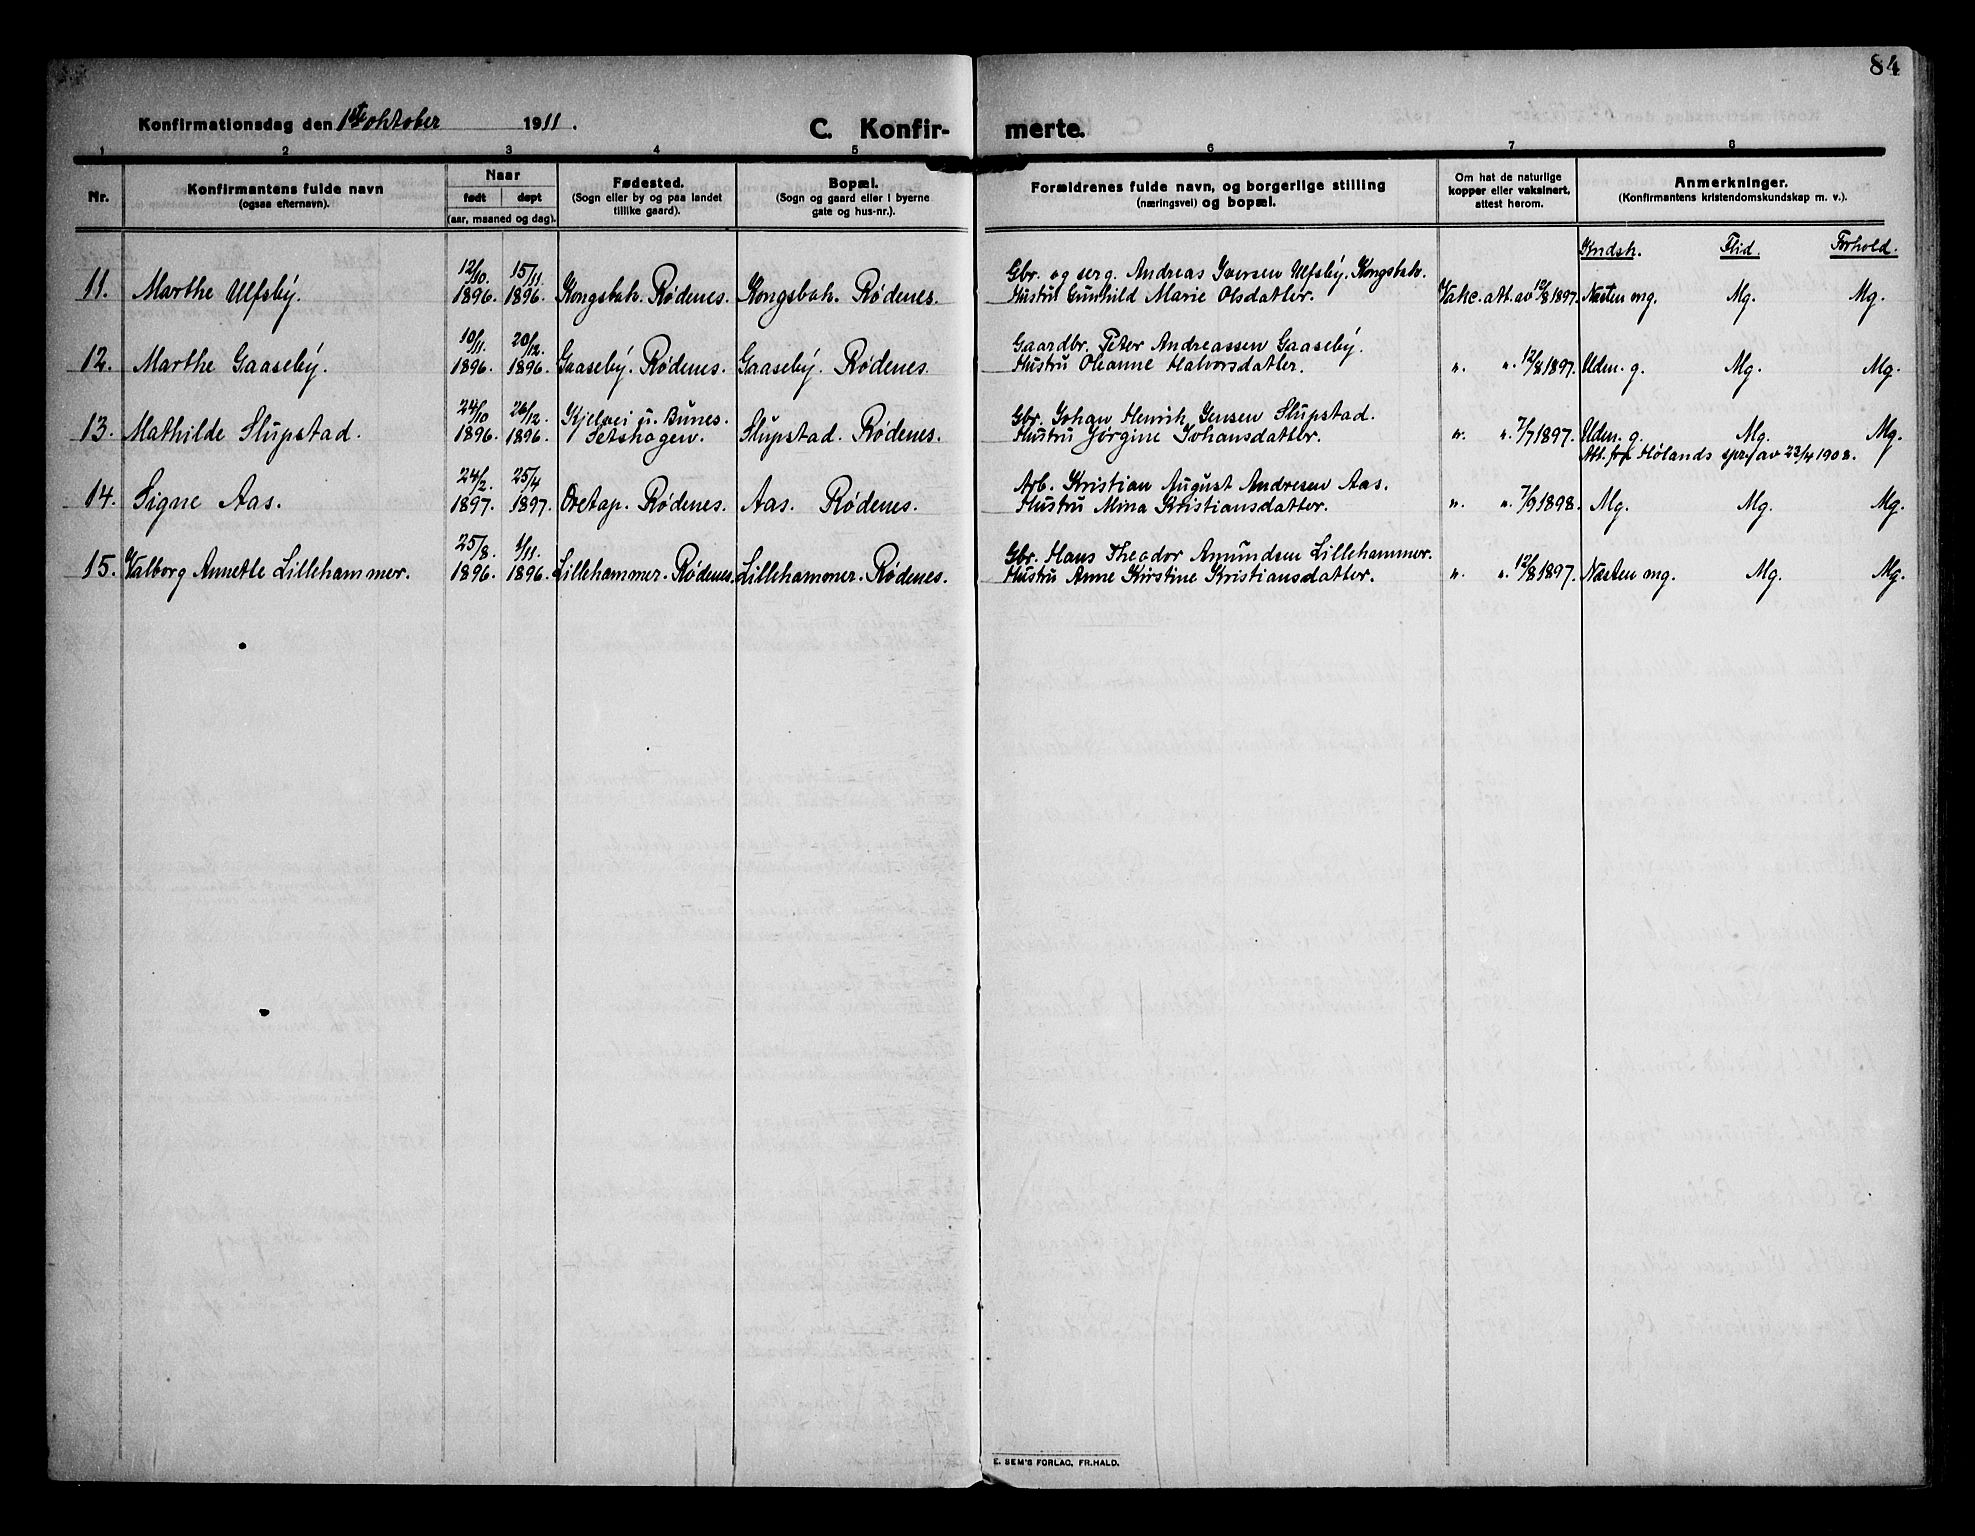 84
Konfirmationsdag den 1ste oktober 1911.
C. Konfir- merte.
1 2 3 4 5 6 7 8
Nr.
Konfirmantens fulde navn
(ogsaa efternavn).
Naar
født døpt
(aar, maaned og dag).
Fødested.
(Sogn eller by og paa landet
tillike gaard).
Bopæl.
(Sogn og gaard eller i byerne
gate og hus-nr.).
Forældrenes fulde navn, og borgerlige stilling
(næringsvei) og bopæl.
Om hat de naturlige
kopper eller vaksinert,
attest herom.
Anmerkninger.
(Konfirmantens kristendomskundskap m. v.).
Kndsk. Flid. Forhold.
12/10. 15/11. Gbr. og serg. Andreas Iversen Ulfsby. Kongsbak.
11. Marthe Ulfsby. 1896. 1896. Kongsbak. Rødenes. Kongsbak. Rødenes. Hustru Gunhild Marie Olsdatter. Vakc. att. av 12/8 1897. Næsten mg. Mg. Mg.
10/11. 20/12. Gaardbr. Peter Andreassen Gaaseby.
12. Marthe Gaaseby. 1896. 1896. Gaaseby. Rødenes. Gaaseby. Rødenes. Hustru Oleanne Halvorsdatter. " " 12/8 1897. Uden. g. Mg. Mg.
24/10 26/12. Kjelvei u. Bunes. Gbr. Johan Henrik Jensen Slupstad.
13. Mathilde Slupstad. 1896. 1896. Setskogen. Slupstad. Rødenes. Hustru Jørgine Johansdatter. " " 7/7 1897. Uden. g. Mg. Mg.
Att. fra Hølands spr. av 23/4 1908.
24/2. 25/4 Arb. Kristian August Andresen Aas.
14. Signe Aas. 1897. 1897. Oretap. Rødenes. Aas. Rødenes. Hustru Mina Kristiansdatter. " " 7/9 1898. Mg. Mg. Mg.
25/8. 1/11. Gbr. Hans Theodor Amundsen Lillehammer.
15. Valborg Annette Lillehammer. 1896. 1896. Lillehammer. Rødenes. Lillehammer. Rødenes. Hustru Anne Kirstine Kristiansdatter. " " 12/8 1897. Næsten mg. Mg. Mg.
E. SEM'S FORLAG, FR.HALD.